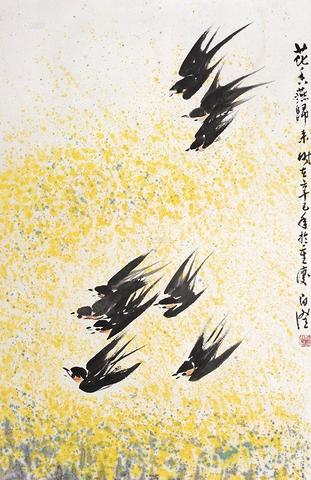 花香燕歸來時在辛巳年於重慶白澄